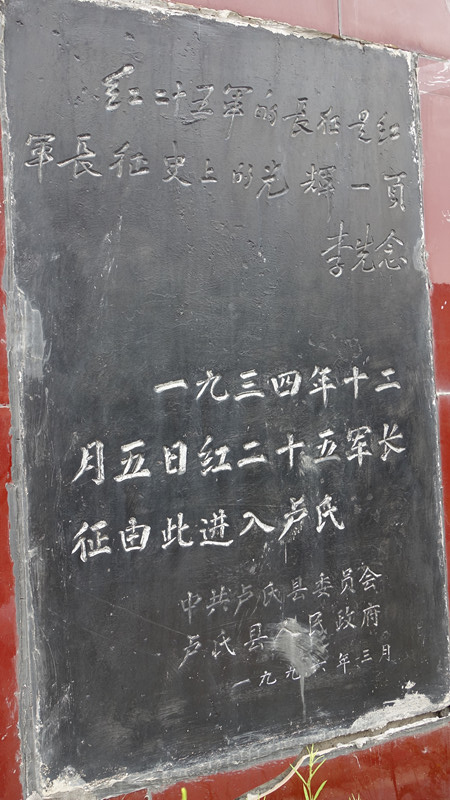 红二十五军的長征是红
軍長征史上的光輝一頁
李先念
一九三四年十二
月五日红二十五军长
征由此进入卢氏
中共卢氏县委员会
卢氏县人民政府
一九九六年三月